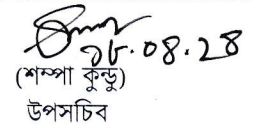 ১৮.০৪.২৪
(শম্পা কুন্ডু)
উপসচিব